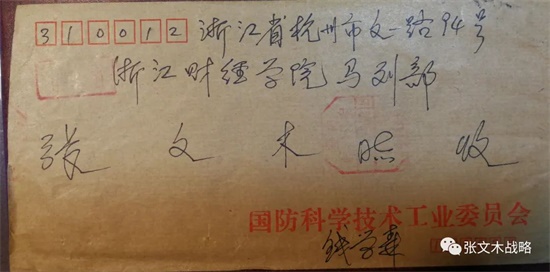 310012 浙江省杭州市文一路94号
浙江财经学院马列部
张文木 收
国防科学技术工业委员会
钱学森
张文木战略